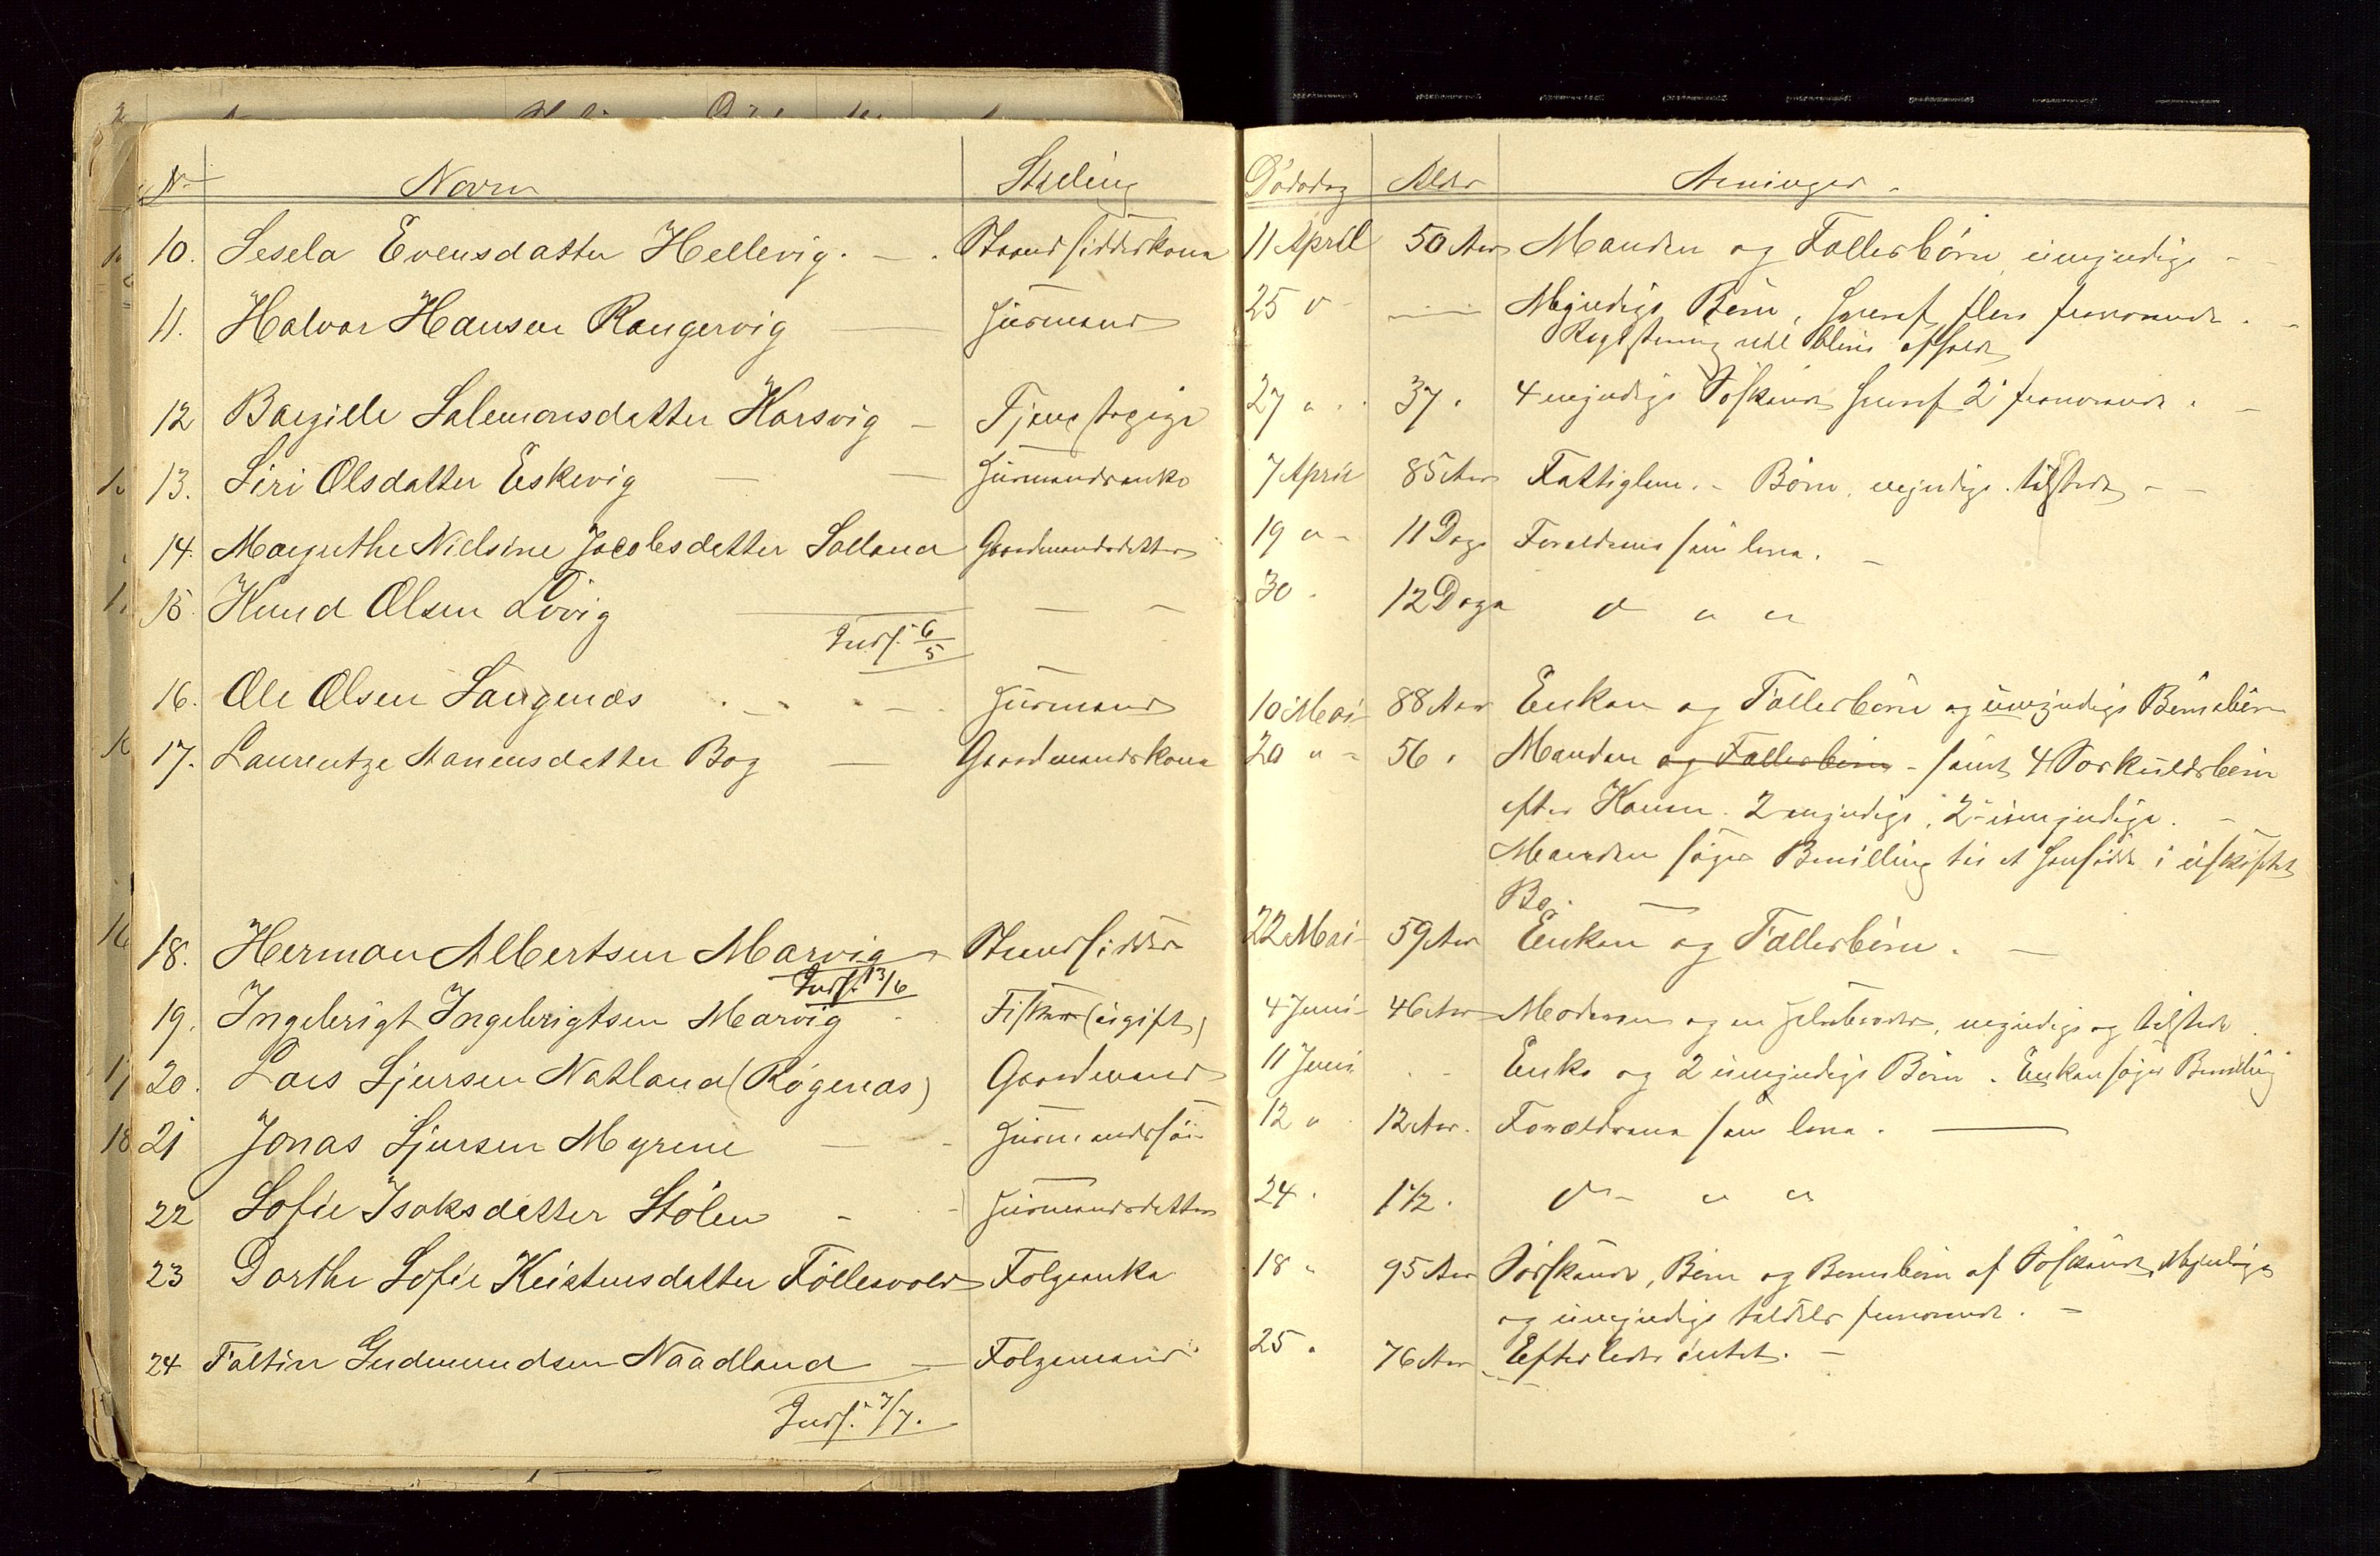 No Navn Stilling Dødsdag Alder Arvinger.
10. Sesela Evensdatter Hellevig. Strandsidderkone 11 April 50 Aar Manden og Fællesbørn umyndige
11. Halvor Hansen Rangervig Huusmand 25 " Myndige Børn, hvoraf flere fraværende.
Registrering vil blive afholdt
12 Bærgitte Salemonsdatter Korsvig Tjenestepige 27 " 37. 4 myndige Søskende hvoraf 2 fraværende.
13. Siri Olsdatter Eskevig Huusmandsenke 7 April 85 Aar Fattiglem. Børn, myndige. tilstede
14. Margrethe Nielsine Jacobsdatter Solland Gaardmandsdatter 19 " 11 Dage Forældrene som leve.
15 Knud Olsen Løvig 30 12 Dage " "
Indf. 6/5
16. Ole Olsen Langenæs Huusmand 10 Mai 88 Aar Enken og Fællesbørn og umyndige Børnebørn
17. Laurentze Hanensdatter Bog Gaardmandskone 20 " 56. Manden og Fællesbørn samt 4 Sørkuldsbørn
efter Konen. 2 myndige, 2 umyndige.
Manden søger Bevilling til at hensidde i uskiftet
Bo.
18. Herman Albertsen Marvig Strandsidder 22 Mai 59 Aar Enken og Fællesbørn.
Indf. 13/6
19. Ingebrigt Ingebrigtsen Marvig Fisker (ugift) 4 Juni 46 Aar Moderen og en Helbroder, myndige og tilstede.
20. Lars Sjursen Natland (Røgenæs) Gaardmand 11 Juni Enke og 2 umyndige Børn. Enken søger Bevilling
21 Jonas Sjursen Myrene Huusmandssøn 12 " 12 Aar. Forældrene som leve.
22 Sofie Isaksdatter Stølen Huusmandsdatter 24. 1 1/2. " "
23 Dorthe Sofie Kristensdatter Føllesvold Folgeenke 18 " 95 Aar Søskende, Børn og Børnebørn af Søskende, Myndige
og umyndige tildels fraværende.
24 Faltin Gudmundsen Naadland Folgemand 25 " 76 Aar Efterlader intet.
Indf. 3/7.